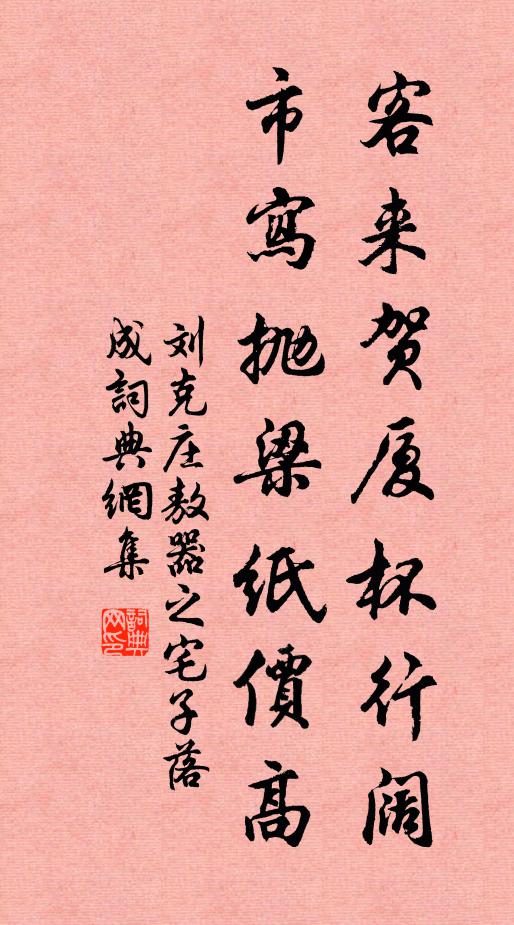 客来贺厦杯行阔
市寫抛梁紙價高
刘克庄敖器之宅子落
成詞典網集
詞典網印